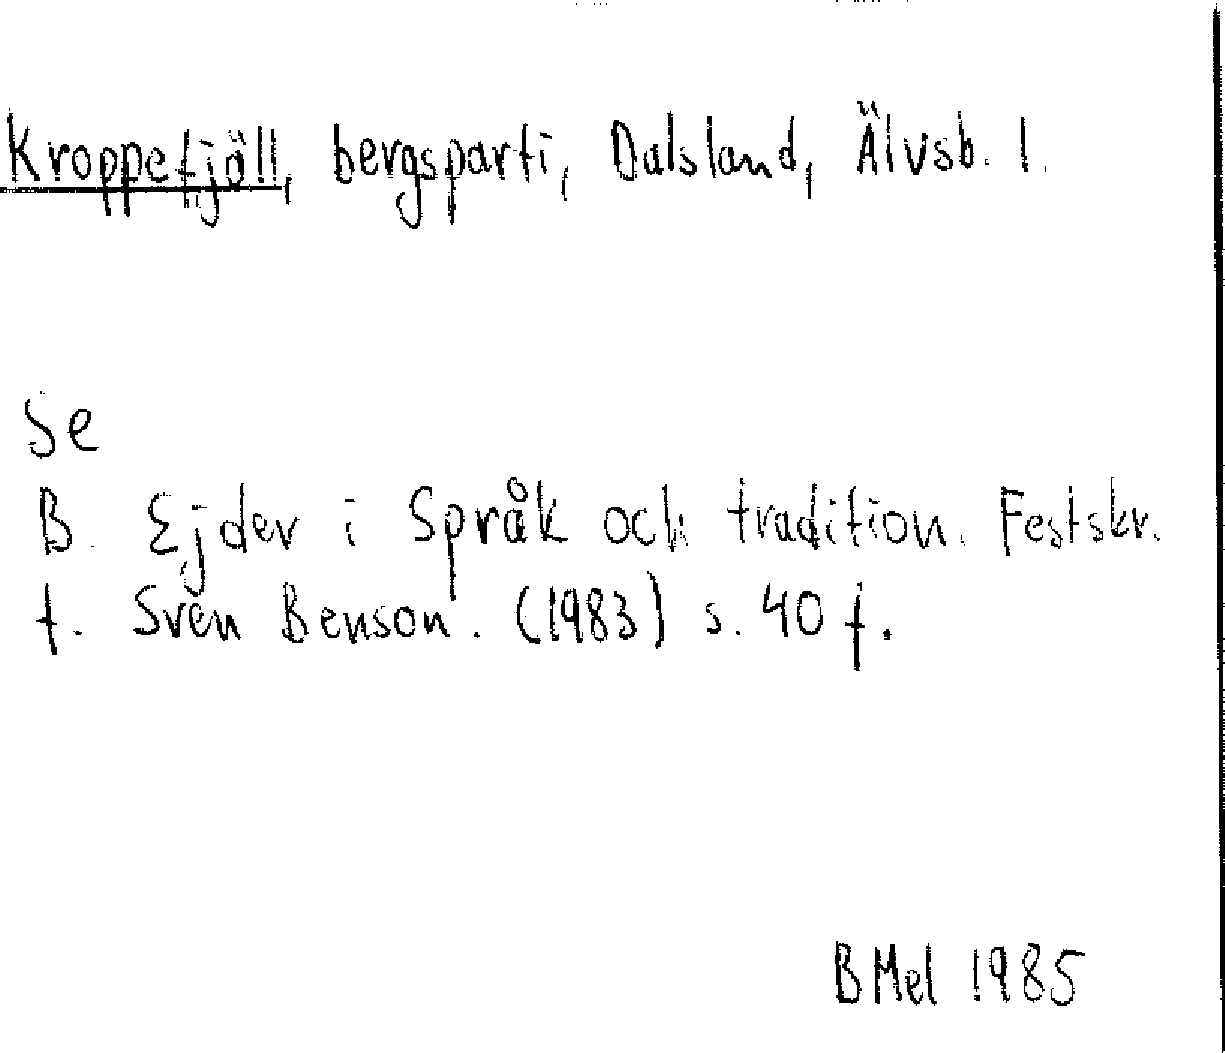 Kroppefjäll, bergsparti, Dalsland, Älvsb. l.
Se
B. Ejder i Språk och tradition. Festskr.
t. Sven Benson. (1983) s. 40 f.
BMel 1985